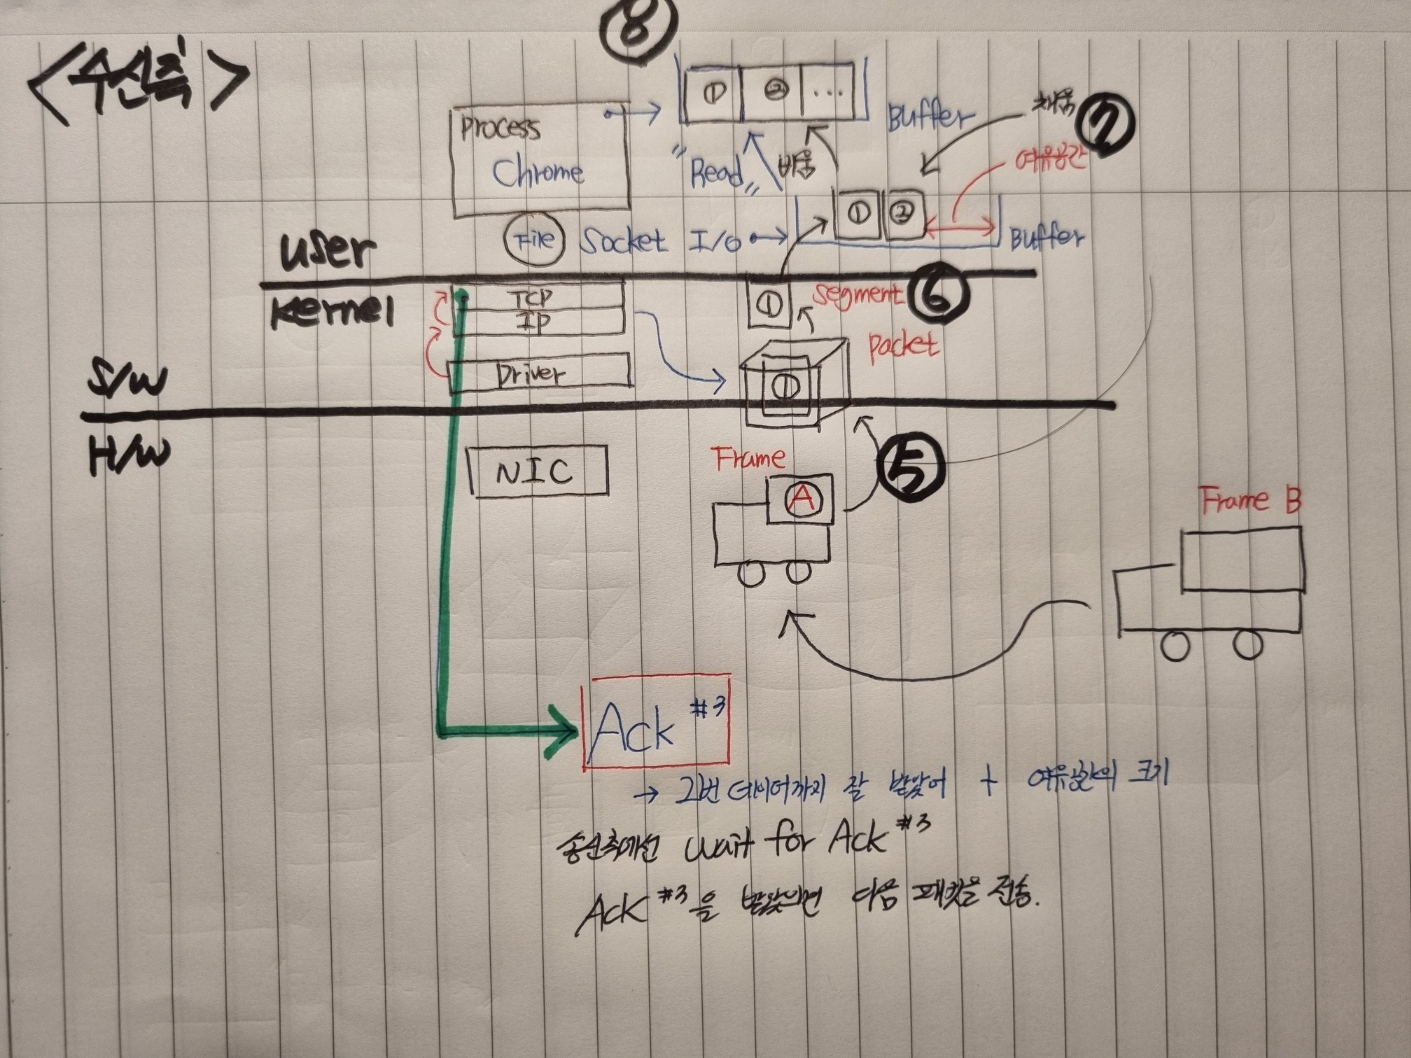 <수신측>
⑧
① ② ...
Buffer
채움 ⑦
여유공간
Process
Chrome
"Read"
비움
① ②
File
Socket I/O
Buffer
User
Kernel
TCP
IP
Driver
①
Segment ⑥
packet
①
S/W
H/W
NIC
Frame
A
⑤
Frame B
Ack #3
→ 2번 데이터까지 잘 받았어 + 여유공간의 크기
송신측에선 wait for Ack #3
Ack #3을 받았으면 다음 패킷을 전송.